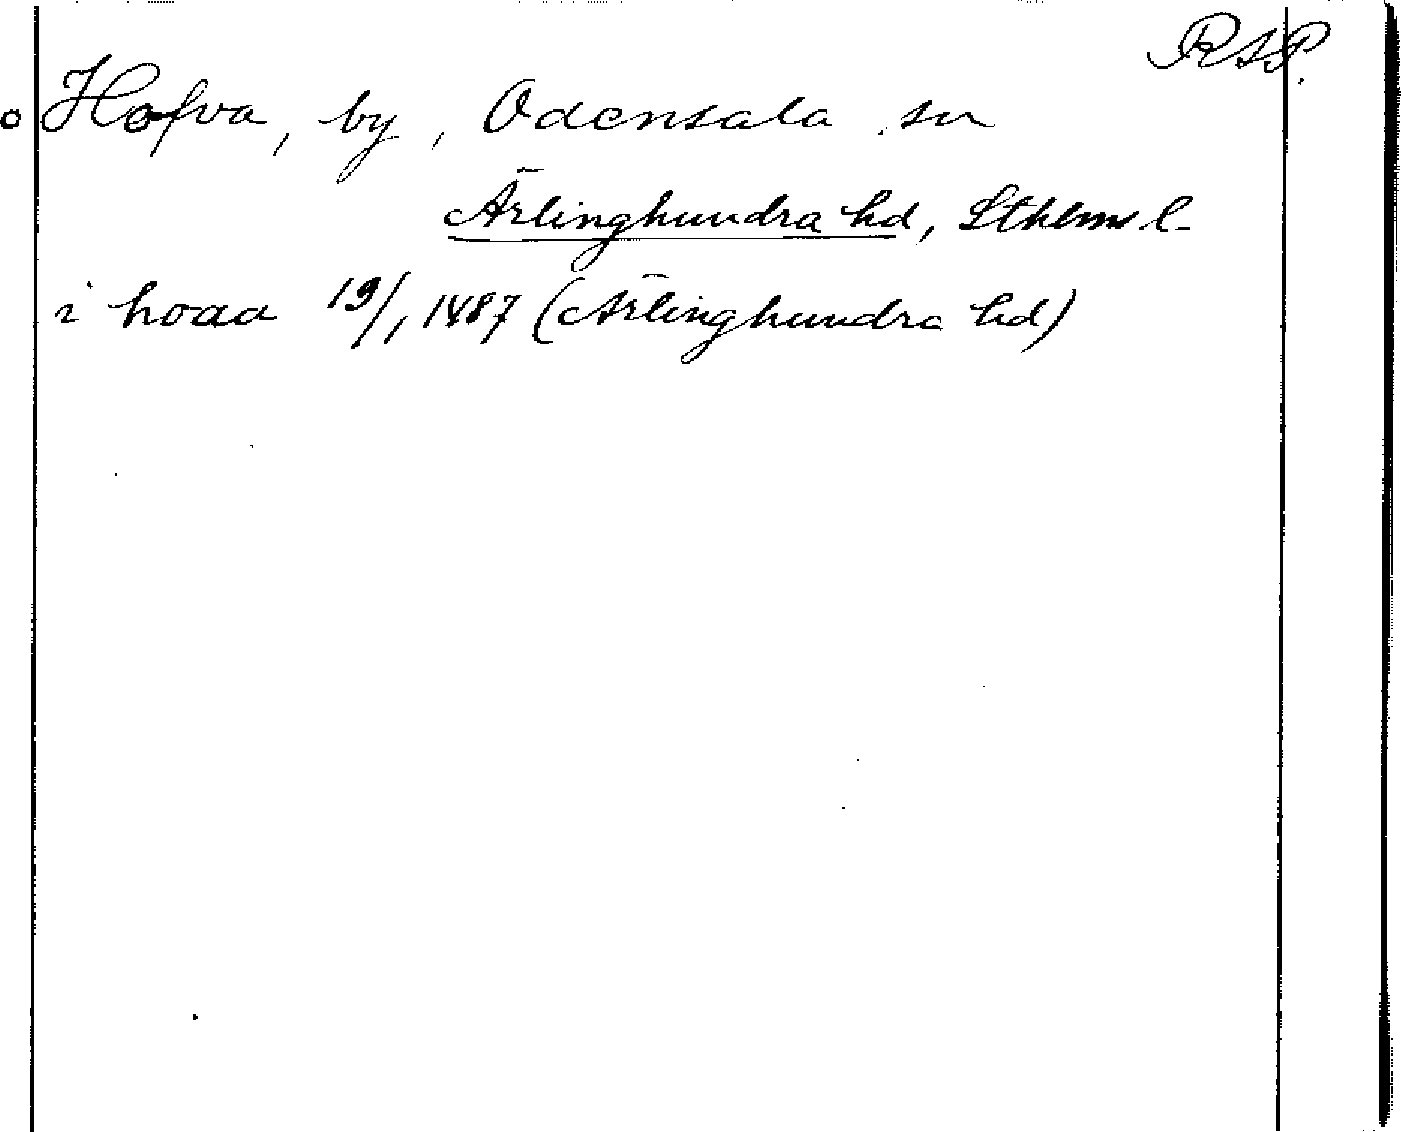 RAP.
Hofva, by, Odensala sn
Ärlinghundra hd, Sthlms l.
i hoaa 19/1 1487 (Ärlinghundra hd)